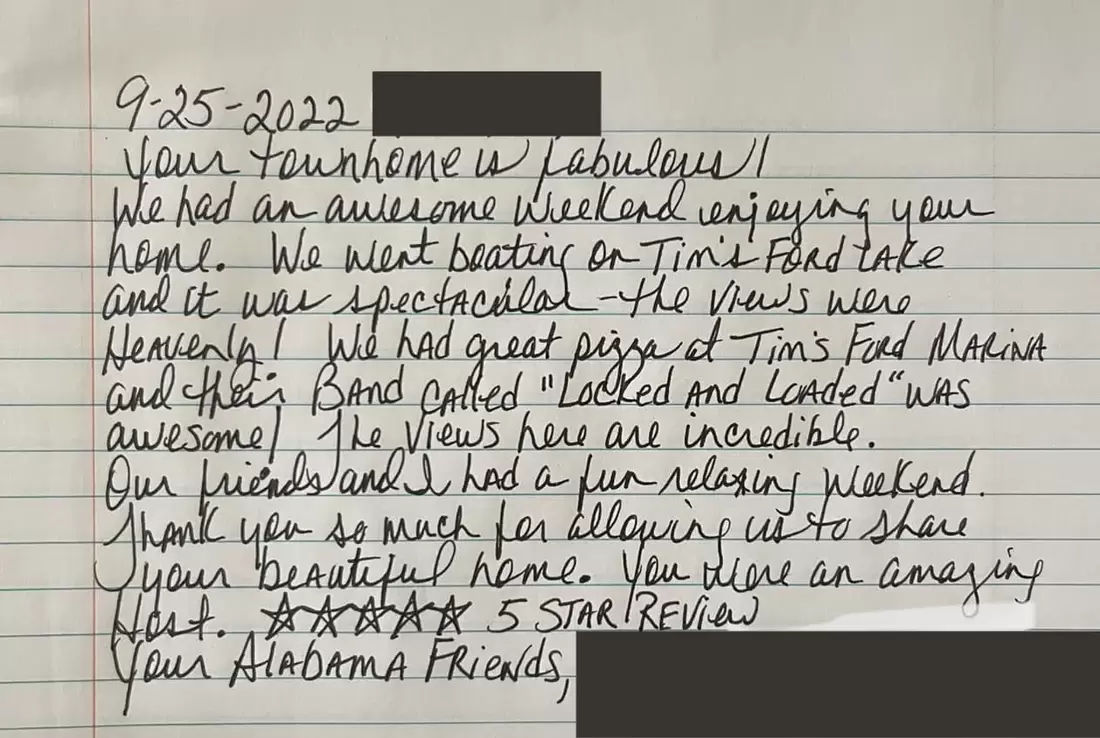 9-25-2022
Your townhome is fabulous!
We had an awesome weekend enjoying your
home. We went boating on Tim's Ford Lake
and it was spectacular - the views were
Heavenly! We had great pizza at Tim's Ford Marina
and their Band called "Locked And Loaded" was
awesome! The views here are incredible.
Our friends and I had a fun relaxing weekend.
Thank you so much for allowing us to share
your beautiful home. You were an amazing
Host. ☆☆☆☆☆ 5 STAR REVIEW
Your Alabama Friends,